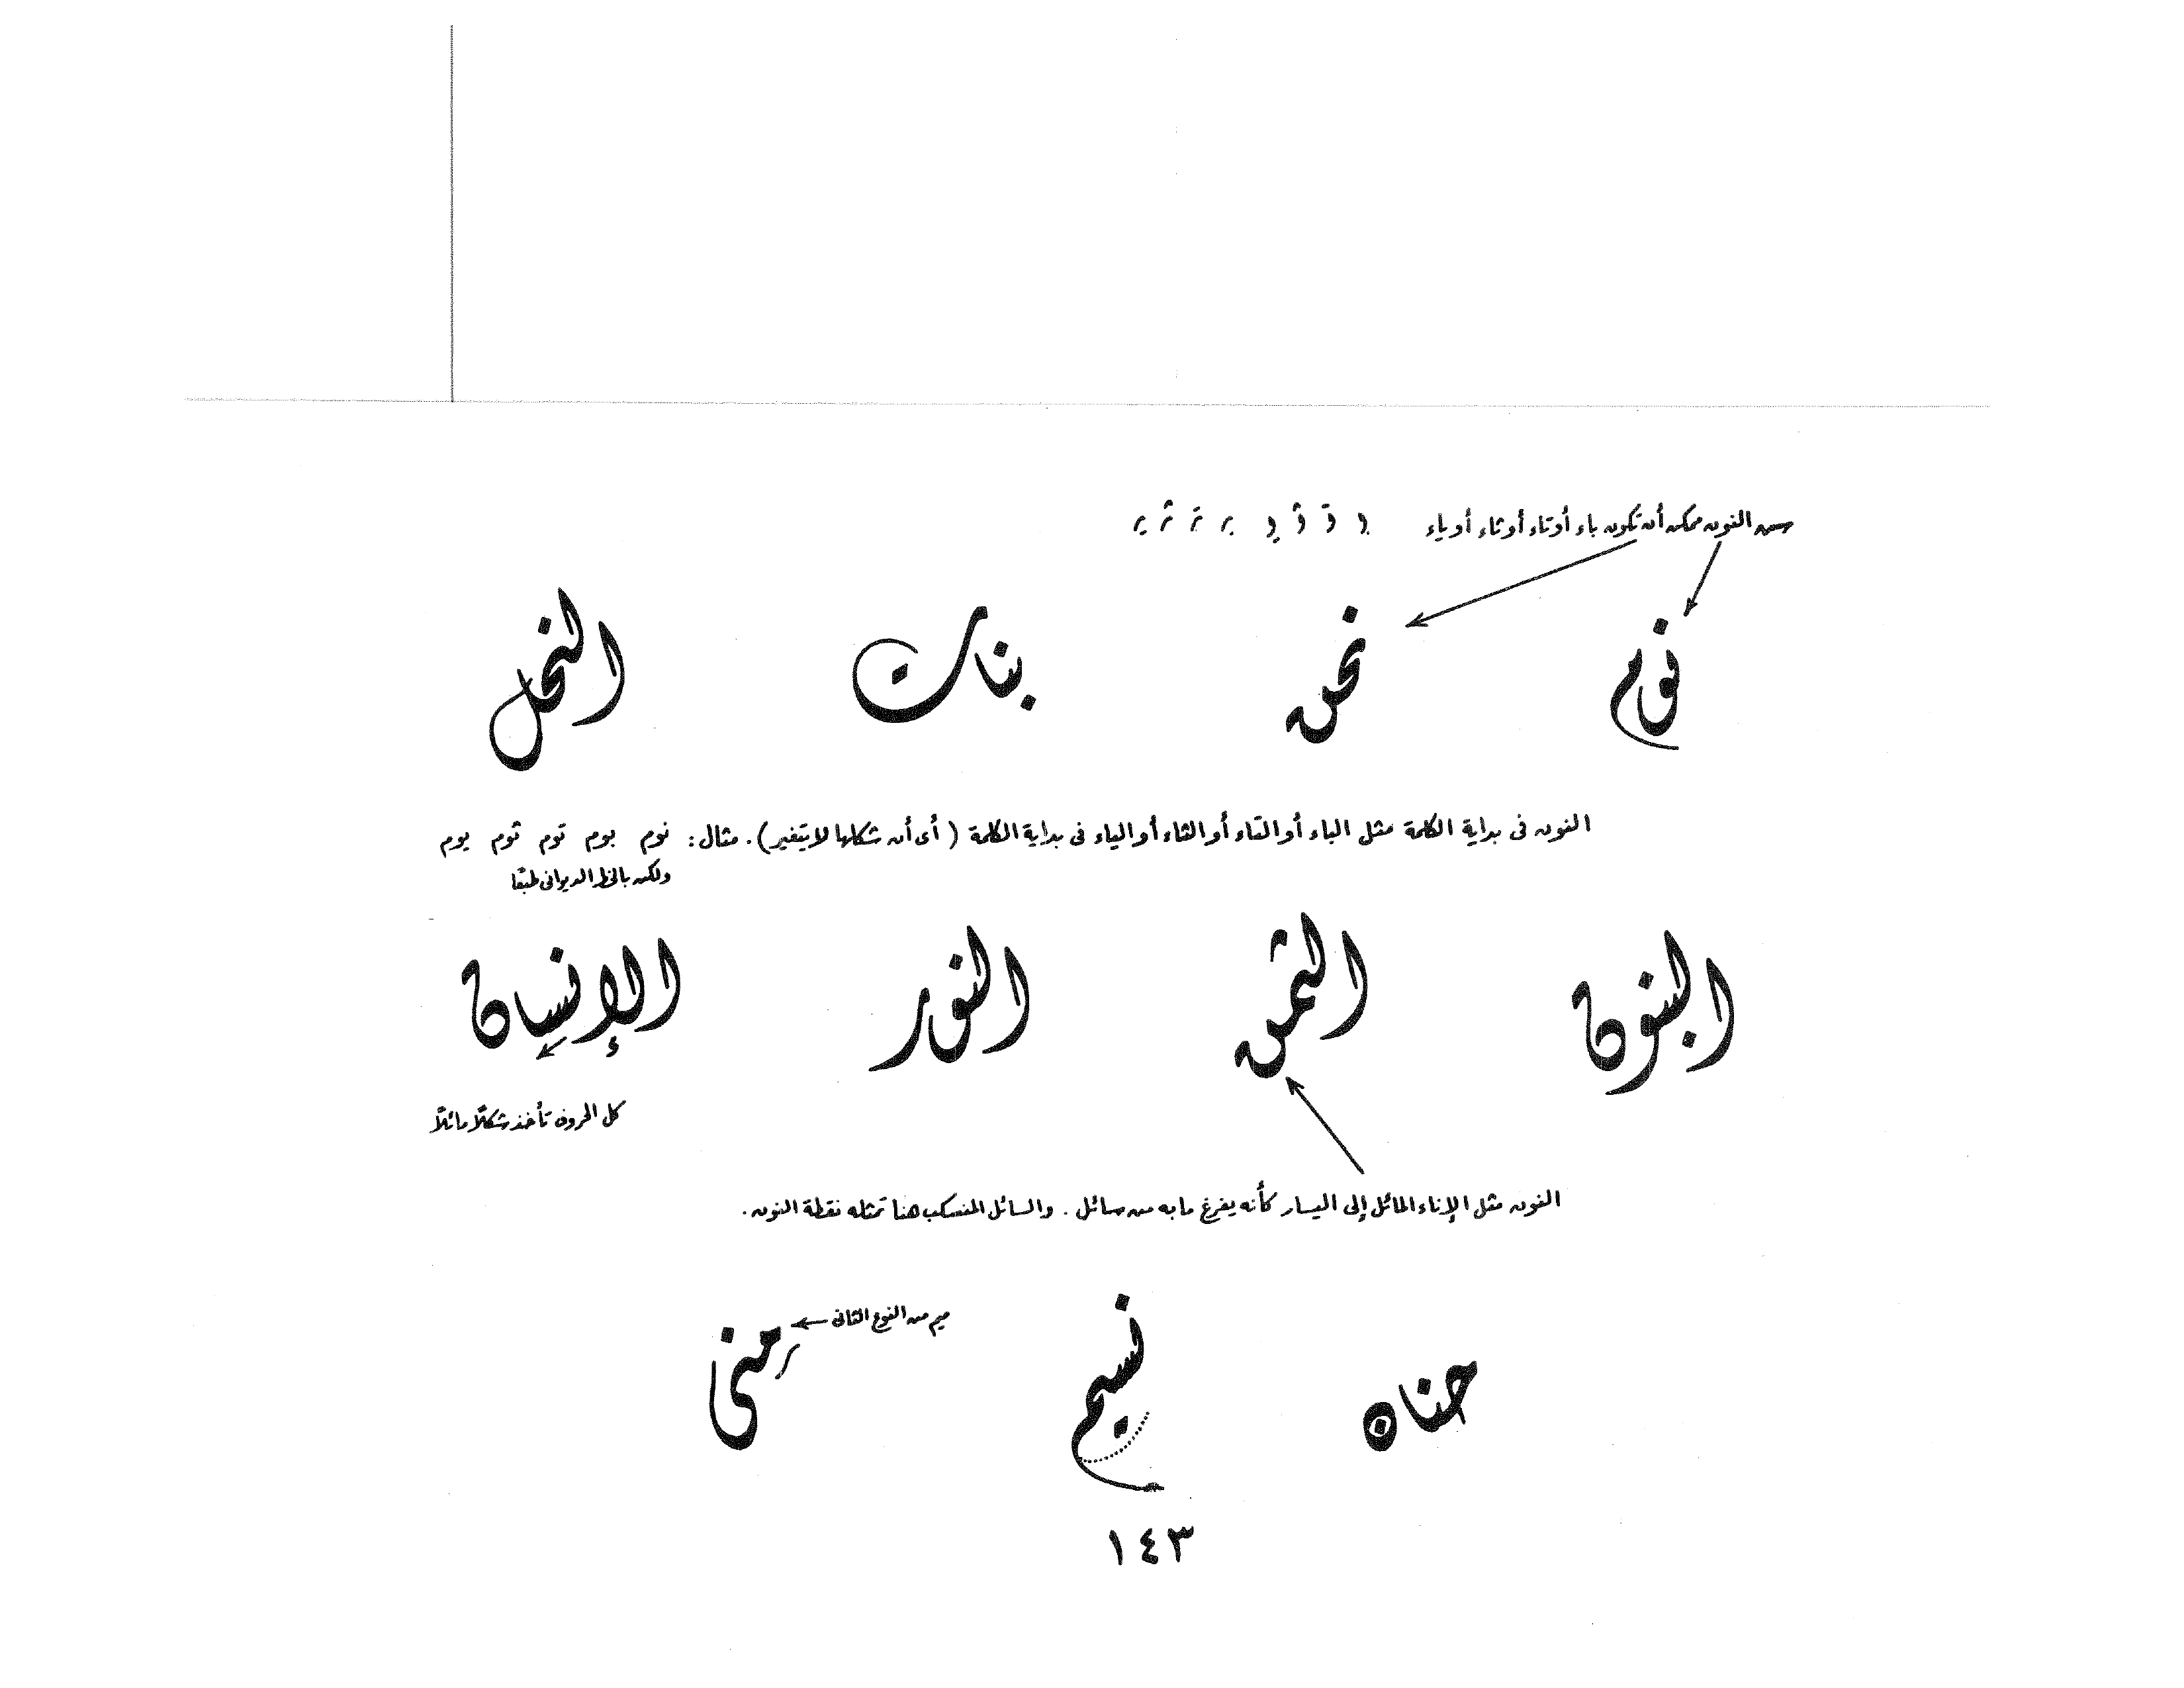 سن النون ممكن أن تكون باء أو تاء أو ثاء أو ياء
نوم نحن بنات النحل
النون فى بداية الكلمة مثل الباء أو التاء أو الثاء أو الياء فى بداية الكلمة ( أى أن شكلها لا يتغير ) . مثال : نوم بوم توم ثوم يوم
ولكن بالخط الديوانى طبقًا
البنون الثمن النور الإنسان
كل الحروف تأخذ شكلًا مائلًا
النون مثل الإناء المائل إلى اليسار كأنه يفرغ ما به من سائل . والسائل المنسكب هنا تمثله نقطة النون .
ميم من النوع الثانى
حنان نسيم منى
١٤٣